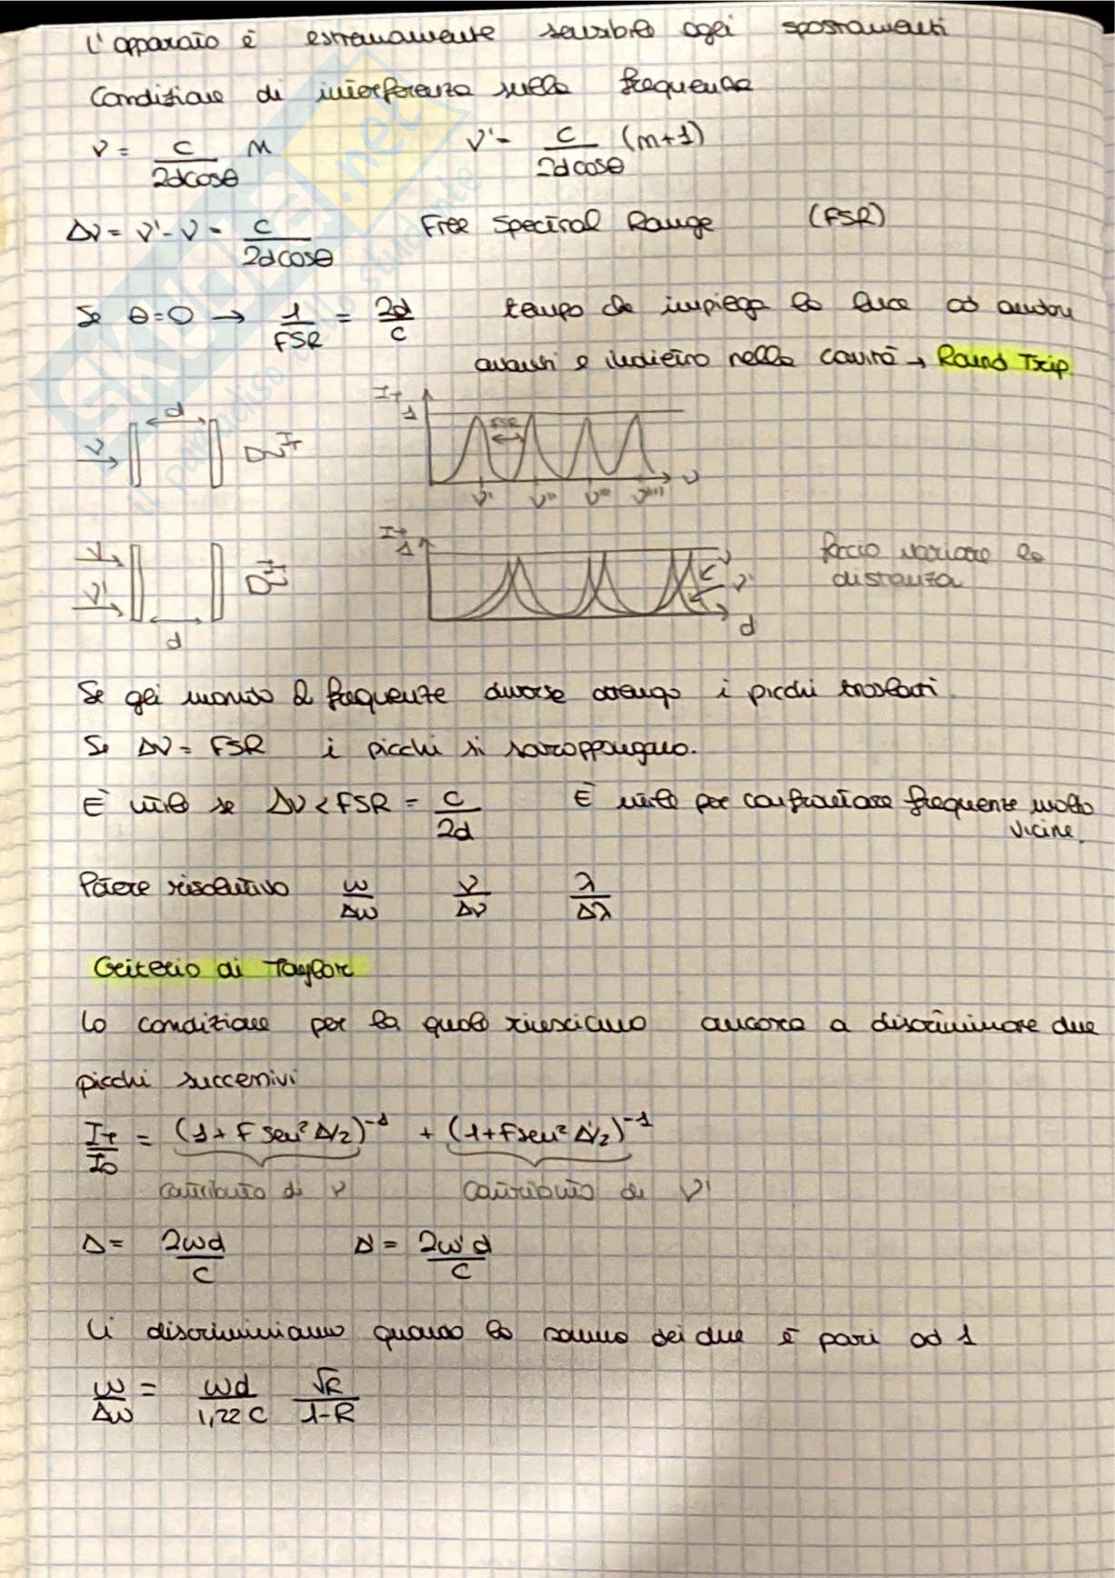 L'apparato è estremamente sensibile agli spostamenti
Condizione di interferenza sulla frequenza
ν = c/(2dcosθ) m    ν' = c/(2dcosθ) (m+1)
Δν = ν' - ν = c/(2dcosθ)    Free Spectral Range (FSR)
Se θ=0 → 1/FSR = 2d/c    tempo che impiega la luce ad andare
avanti e indietro nella cavità → Round Trip
d
ν
D
IT
IT
1
FSR
ν' ν'' ν''' ν''''
ν
ν
ν'
D
IT
d
IT
1
ν
ν'
d
faccio variare la
distanza
Se gli mando 2 frequenze diverse ottengo i picchi traslati
Se Δν = FSR i picchi si sovrappongono.
È utile se Δν < FSR = c/2d    È utile per confrontare frequenze molto
vicine.
Potere risolutivo ω/Δω    ν/Δν    λ/Δλ
Criterio di Taylor
La condizione per la quale riusciamo ancora a discriminare due
picchi successivi
IT/I0 = (1+F sen² Δ/2)⁻¹ + (1+F sen² Δ'/2)⁻¹
contributo di ν    contributo di ν'
Δ = 2ωd/c    Δ' = 2ω'd/c
Li discriminiamo quando la somma dei due è pari ad 1
ω/Δω = ωd/(1,22c) √R/(1-R)